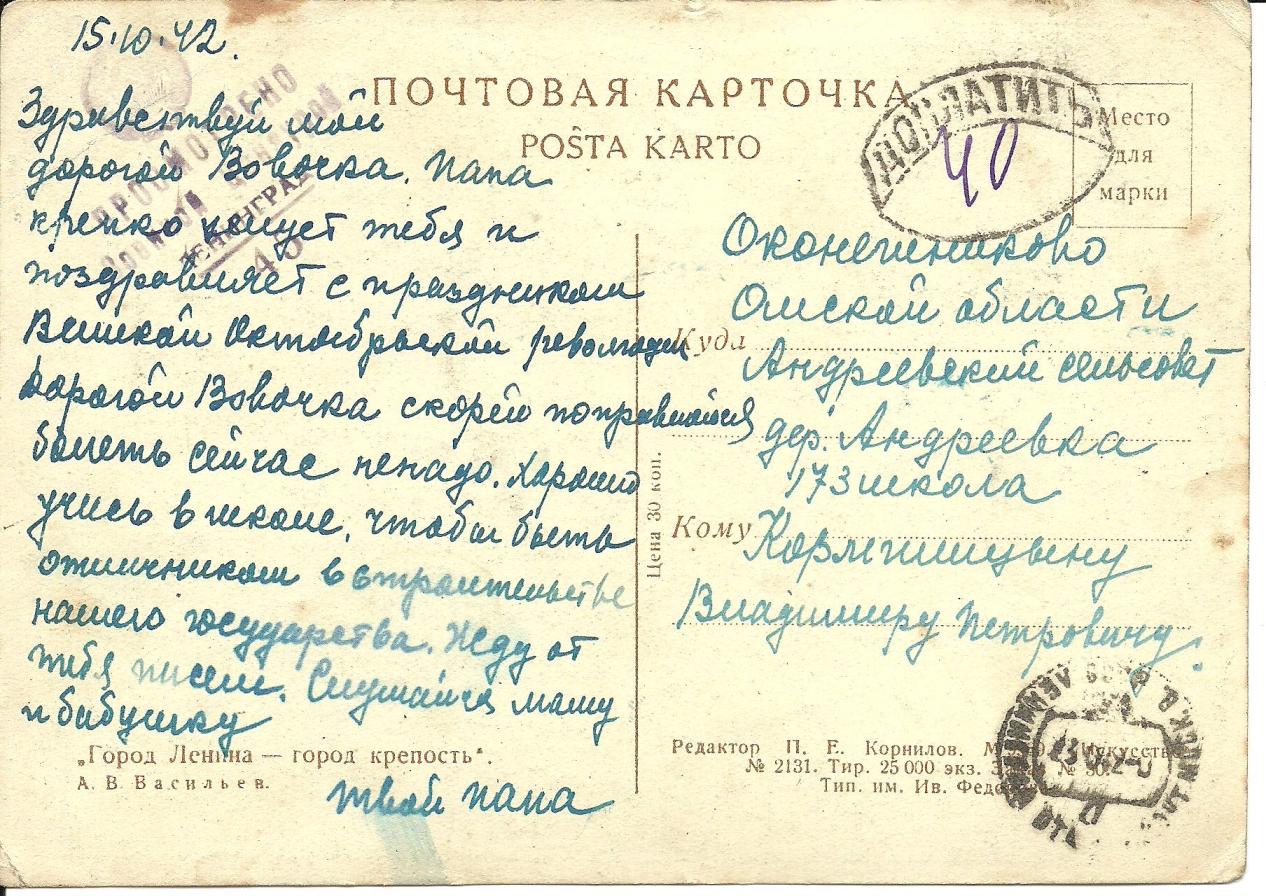 15.10.42.
Здравствуй мой
дорогой Вовочка. Папа
крепко целует тебя и
поздравляет с праздником
Великой Октябрьской революции
Дорогой Вовочка скорей поправляйся
болеть сейчас ненадо. Хорошо
учись в школе, чтобы быть
отличником в строительстве
нашего государства. Жду от
тебя писем. Слушайся маму
и бабушку
твой папа
„Город Ленина — город крепость“.
А. В. Васильев.
ПРОСМОТРЕНО
Военной Цензурой
ЛЕНИНГРАД
ПОЧТОВАЯ КАРТОЧКА
POŜTA KARTO
ДОПЛАТИТЬ
40
Место
для
марки
Оконешниково
Омской области
Куда
Андреевский сельсовет
дер. Андреевка
173 школа
Кому
Владимиру Петровичу.
Цена 30 коп.
Редактор П. Е. Корнилов. Искусство
№ 2131. Тир. 25 000 экз.
Тип. им. Ив. Федорова